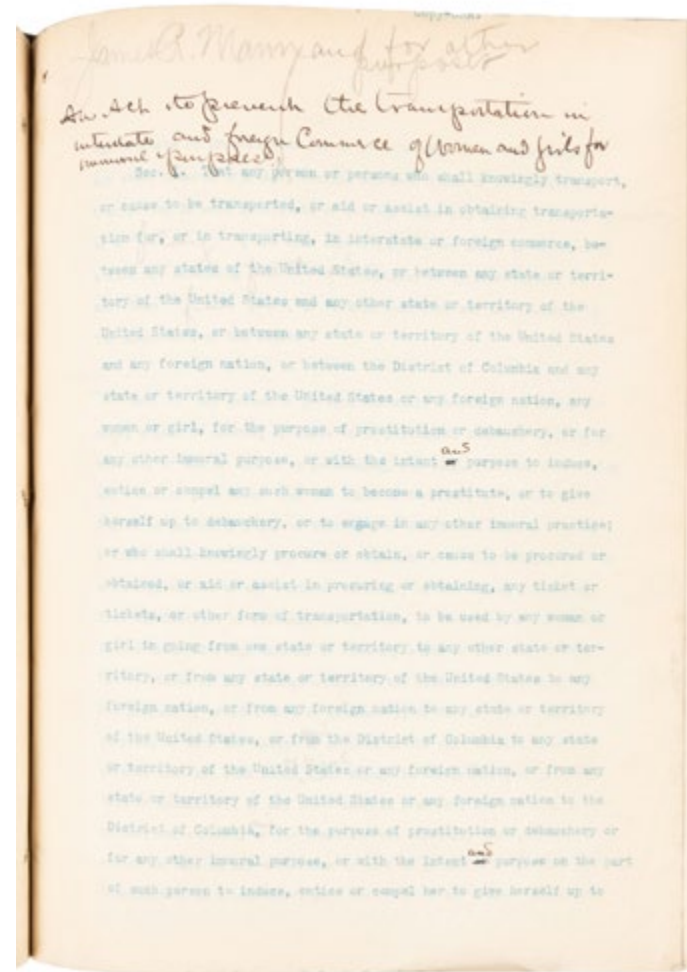 James R. Mann and for other
purposes
An Act to prevent the transportation in
interstate and foreign Commerce of Women and girls for
immoral purposes.
Sec. That any person or persons who shall knowingly transport,
or cause to be transported, or aid or assist in obtaining transporta-
tion for, or in transporting, in interstate or foreign commerce, be-
tween any states of the United States, or between any state or terri-
tory of the United States and any other state or territory of the
United States, or between any state or territory of the United States
and any foreign nation, or between the District of Columbia and any
state or territory of the United States or any foreign nation, any
woman or girl, for the purpose of prostitution or debauchery, or for
and
any other immoral purpose, or with the intent or purpose to induce,
entice or compel any such woman to become a prostitute, or to give
herself up to debauchery, or to engage in any other immoral practice;
or who shall knowingly procure or obtain, or cause to be procured or
obtained, or aid or assist in procuring or obtaining, any ticket or
tickets, or other form of transportation, to be used by any woman or
girl in going from one state or territory to any other state or ter-
ritory, or from any state or territory of the United States to any
foreign nation, or from any foreign nation to any state or territory
of the United States, or from the District of Columbia to any state
or territory of the United States or any foreign nation, or from any
state or territory of the United States or any foreign nation to the
District of Columbia, for the purpose of prostitution or debauchery or
and
for any other immoral purpose, or with the intent or purpose on the part
of such person to induce, entice or compel her to give herself up to